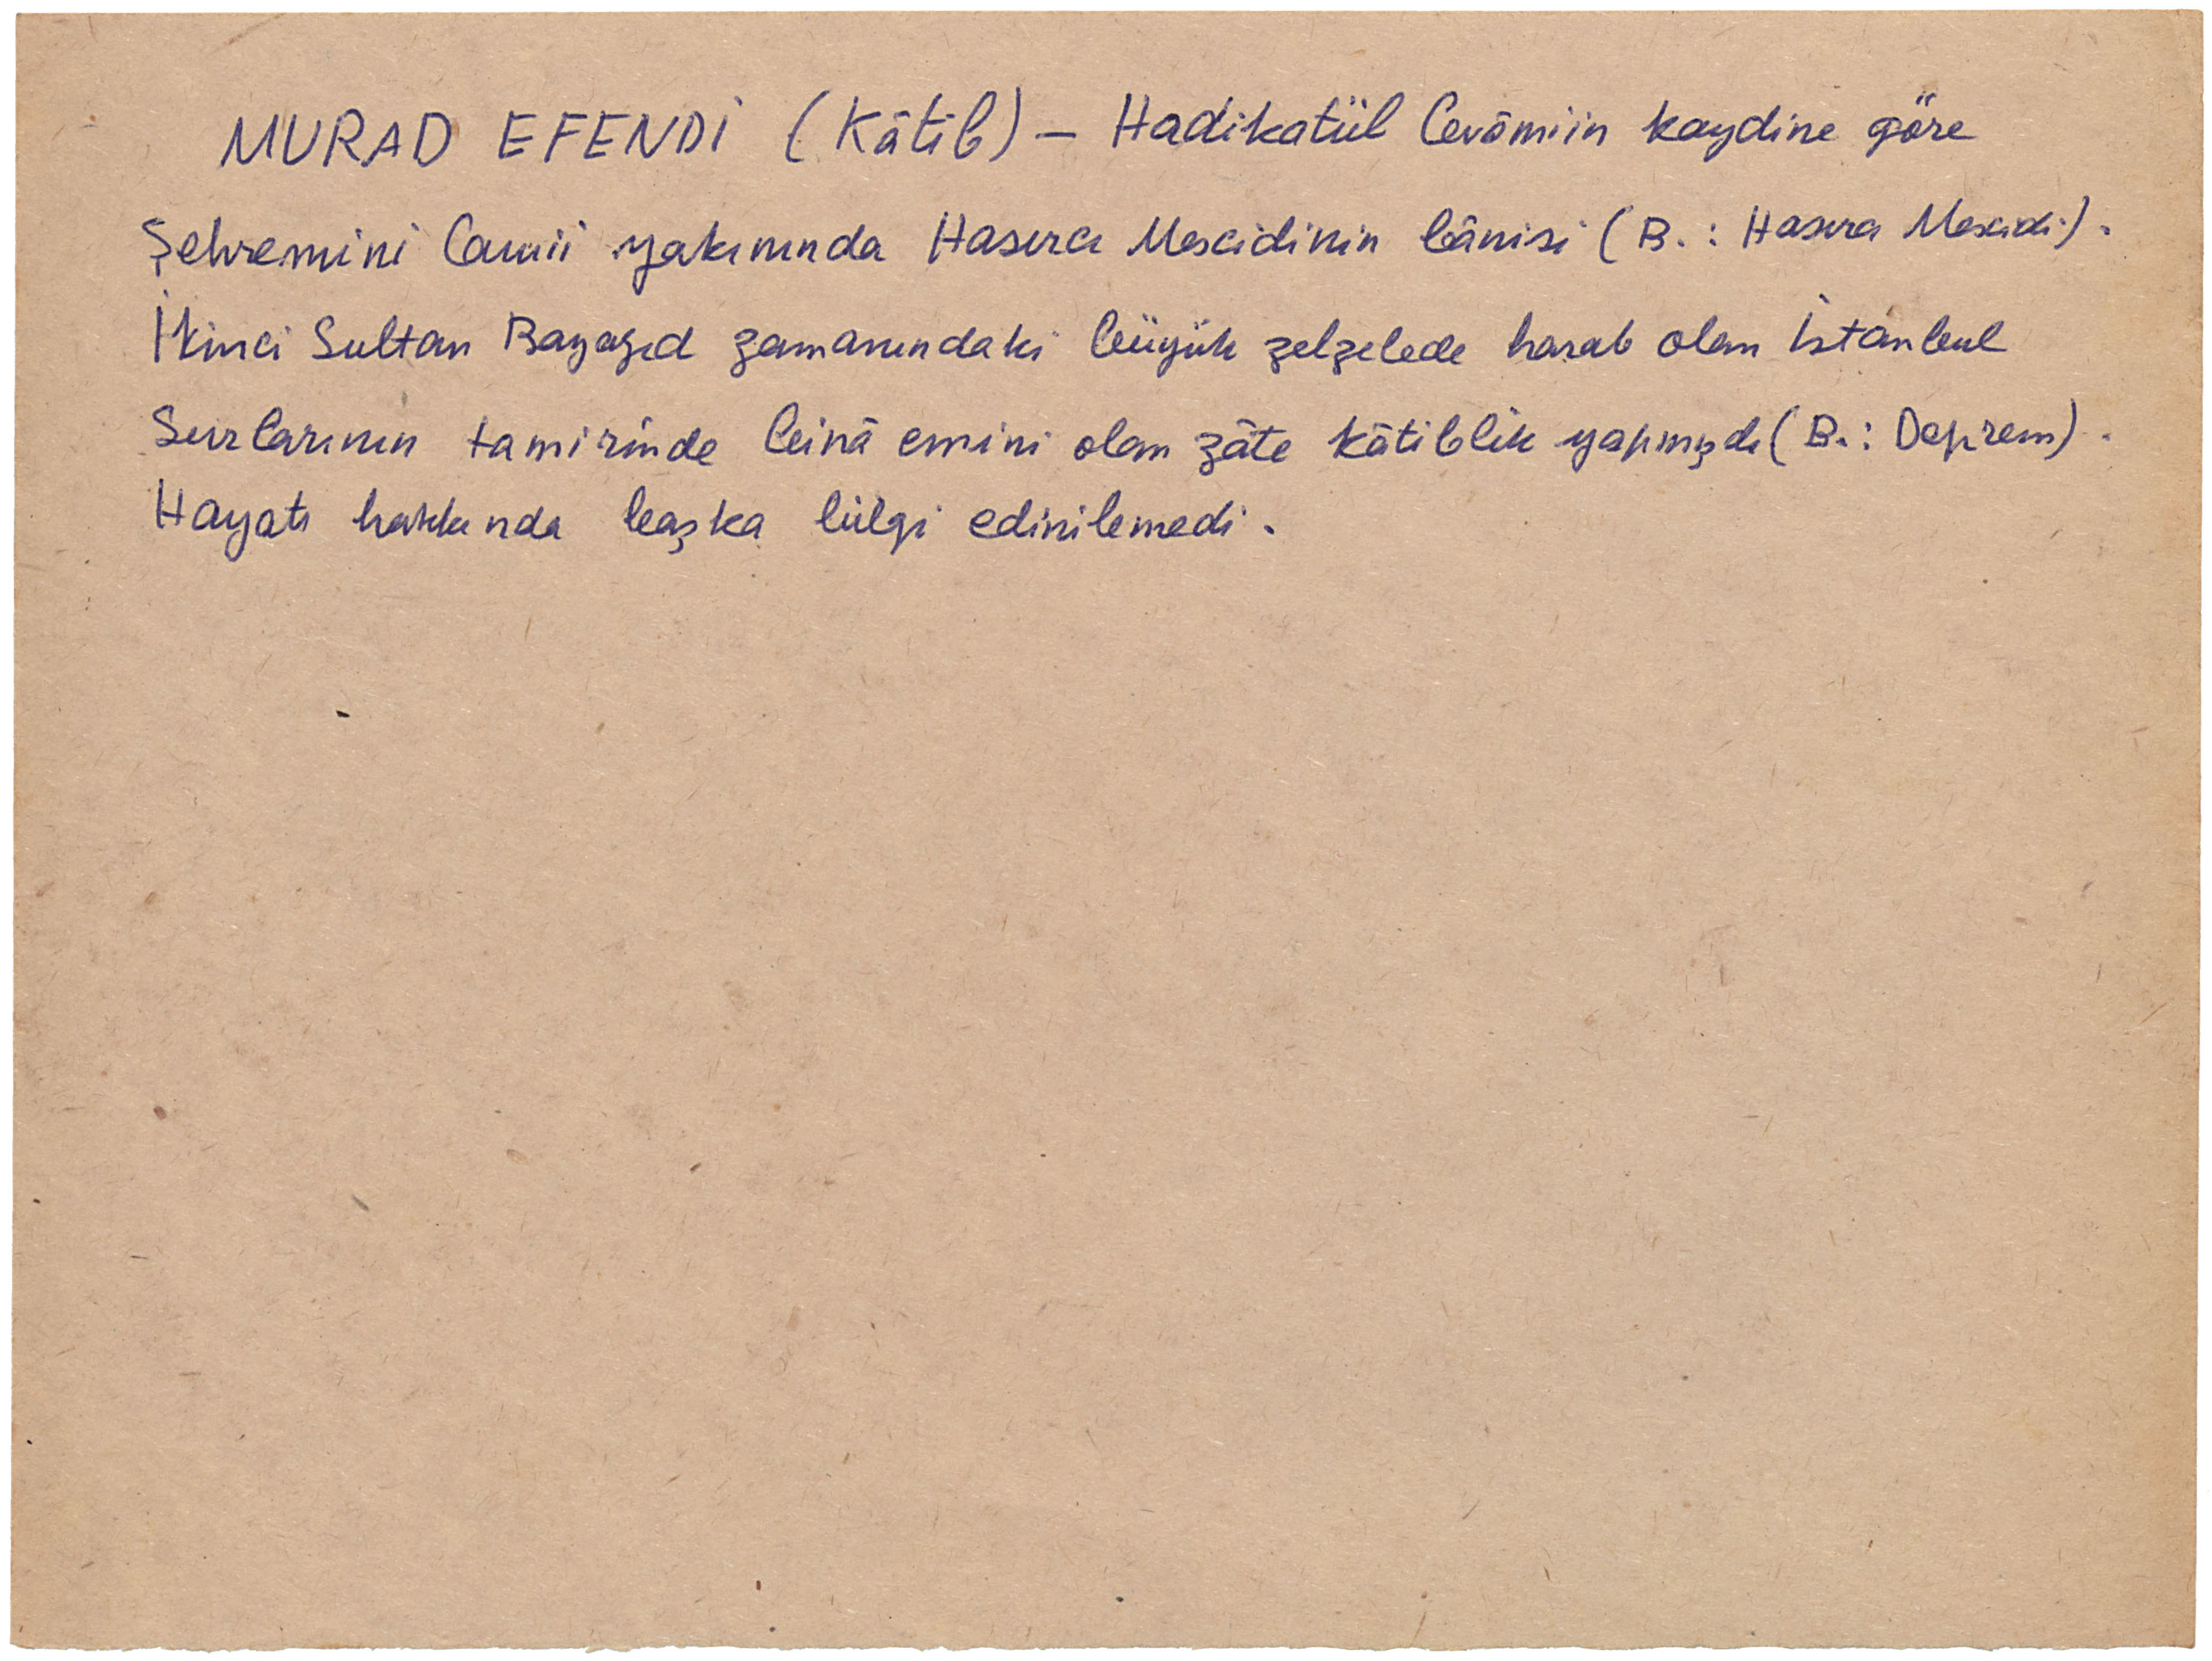 MURAD EFENDİ (Kâtib) — Hadikatül Cevâmiin kaydine göre
Şehremini Camii yakınında Hasırcı Mescidinin bânisi (B.: Hasırcı Mescidi).
İkinci Sultan Bayazıd zamanındaki büyük zelzelede harab olan İstanbul
Surlarının tamirinde binâ emini olan zâte kâtiblik yapmışdı (B.: Deprem).
Hayatı hakkında başka bilgi edinilemedi.